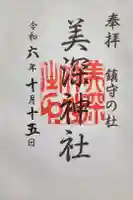 奉拝 鎮守の杜
美深神社
令和六年十月十五日